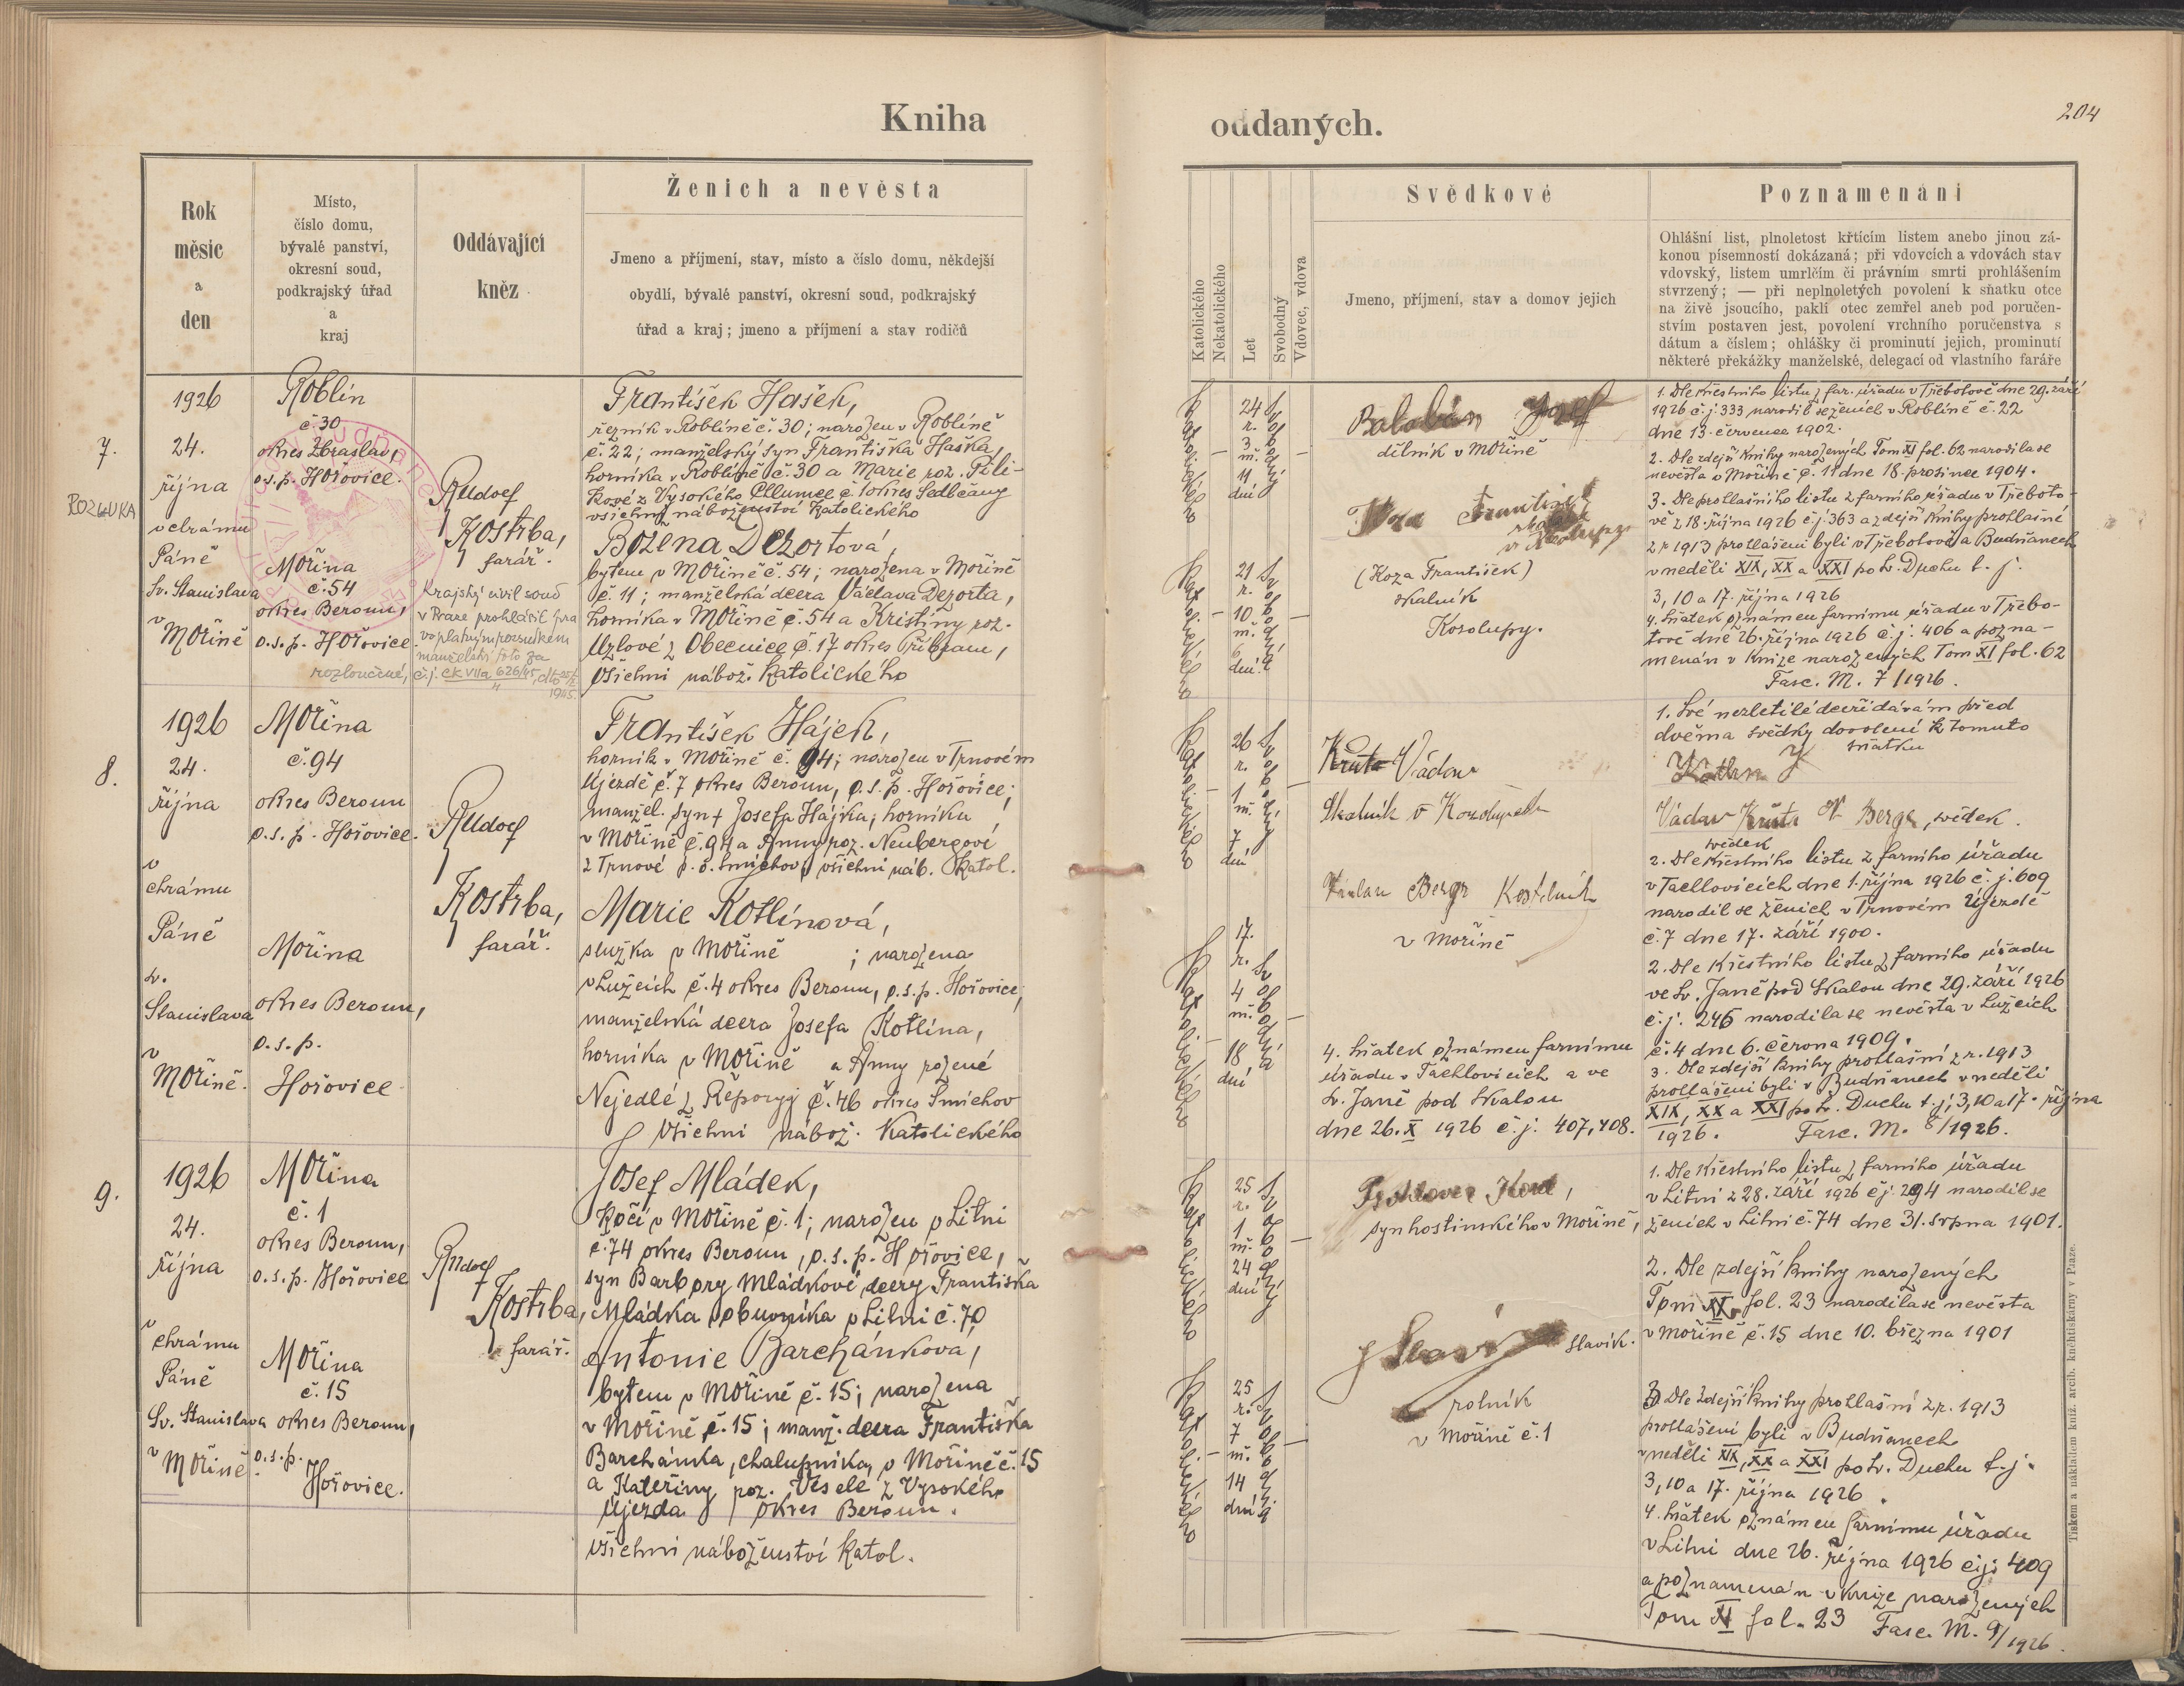 Kniha
oddaných.
204
Rok
měsíc
a
den
Místo,
číslo domu,
bývalé panství,
okresní soud,
podkrajský úřad
a
kraj
Oddávající
kněz
Ženich a nevěsta
Jmeno a příjmení, stav, místo a číslo domu, někdejší
obydlí, bývalé panství, okresní soud, podkrajský
úřad a kraj; jmeno a příjmení a stav rodičů
Katolického
Nekatolického
Let
Svobodný
Vdovec, vdova
Svědkové
Jmeno, příjmení, stav a domov jejich
Poznamenání
Ohlášní list, plnoletost křtícím listem anebo jinou zá-
konou písemností dokázaná; při vdovcích a vdovách stav
vdovský, listem umrlčím či právním smrti prohlášením
stvrzený; — při neplnoletých povolení k sňatku otce
na živě jsoucího, pakli otec zemřel aneb pod poručen-
stvím postaven jest, povolení vrchního poručenstva s
dátum a číslem; ohlášky či prominutí jejich, prominutí
některé překážky manželské, delegací od vlastního faráře
7.
ROZLUKA
1926
24.
října
v chrámu
Páně
Sv. Stanislava
v
Mořině
Roblín
č 30
okres Zbraslav,
o.s.p. Hořovice.
Mořina
č. 54
okres Beroun,
o.s.p. Hořovice.
Rudolf
Kostrba,
farář.
Krajský civil soud
v Praze prohlásil
manželství toto za
rozloučené, č.j. Ck VIIa 626/45
František Hašek,
řezník v Roblíně č. 30; narozen v Roblíně
č. 22; manželský syn Františka Haška,
horníka v Roblíně č. 30 a Marie roz. Pili-
kové z Vysokého Chlumce č 1 okres Sedlčany
všichni náboženství katolického
Božena Dezortová,
bytem v Mořině č. 54; narozena v Mořině
č. 11; manželská dcera Václava Dezorta,
horníka v Mořině č. 54 a Kristiny roz.
Uzlové z Obecnice č. 17 okres Příbram,
všichni nábož. katolického
Katolického
24 r. 3 m. 11 dní
Svobodný
Katolického
21 r. 10 m. 6 dní
Svobodná
Balabán Josef
dělník v Mořině
Koza František
(Koza František)
skalník
Kozolupy.
1. Dle křestního listu z far. úřadu v Třebotově dne 29. září
1926 č.j. 333 narodil se ženich v Roblíně č. 22
dne 13. července 1902.
2. Dle zdejší knihy narozených Tom XI fol. 62 narodila se
nevěsta v Mořině č. 11 dne 18. prosince 1904.
3. Dle prohlašního listu z farního úřadu v Třeboto-
vě z 18. října 1926 č.j. 363 a zdejší knihy prohlašné
z r. 1913 prohlášeni byli v Třebotově a Budňanech
v neděli XIX, XX a XXI po sv. Duchu t. j.
3, 10 a 17. října 1926
4. Sňatek oznámen farnímu úřadu v Třebo-
tově dne 26. října 1926 č.j. 406 a pozna-
menán v knize narozených Tom XI fol. 62
Fasc. M. 7/1926.
8.
1926
24.
října
v
chrámu
Páně
sv.
Stanislava
v
Mořině.
Mořina
č. 94
okres Beroun
o.s.p. Hořovice.
Mořina
okres Beroun,
o.s.p.
Hořovice
Rudolf
Kostrba,
farář.
František Hájek,
horník v Mořině č. 94; narozen v Trnovém
Újezdě č. 7 okres Beroun, o.s.p. Hořovice;
manžel. syn † Josefa Hájka, horníka
v Mořině č. 94 a Anny roz. Neubergové
z Trnové p. o. Smíchov, všichni náb. katol.
Marie Kotlínová,
služka v Mořině ; narozena
v Lužcích č. 4 okres Beroun, o.s.p. Hořovice;
manželská dcera Josefa Kotlína,
horníka v Mořině a Anny rozené
Nejedlé z Řeporyj č. 46 okres Smíchov
Všichni nábož. katolického
Katolického
26 r. 1 m. 7 dní
Svobodný
Katolického
17. r. 4 m. 18 dní
Svobodná
Václav
Skalník v Kozolupech
Berge Kostelník
v Mořině
4. Sňatek oznámen farnímu
úřadu v Tachlovicích a ve
Sv. Janě pod Skalou
dne 26. X 1926 č.j. 407, 408.
1. Své nezletilé dceři dávám před
dvěma svědky dovolení k tomuto
sňatku
Václav Berge, svědek.
svědek
2. Dle křestního listu z farního úřadu
v Tachlovicích dne 1. října 1926 č.j. 609
narodil se ženich v Trnovém Újezdě
č. 7 dne 17. září 1900.
2. Dle křestního listu z farního úřadu
ve Sv. Janě pod Skalou dne 29. září 1926
č.j. 246 narodila se nevěsta v Lužcích
č. 4 dne 6. června 1909.
3. Dle zdejší knihy prohlašní z r. 1913
prohlášeni byli v Budňanech v neděli
XIX, XX a XXI po sv. Duchu t.j. 3, 10 a 17. října
1926. Fasc. M. 8/1926.
9.
1926
24.
října
v
chrámu
Páně
Sv. Stanislava
v
Mořině.
Mořina
č. 1
okres Beroun,
o.s.p. Hořovice
Mořina
č. 15
okres Beroun,
o.s.p.
Hořovice.
Rudolf
Kostrba,
farář.
Josef Mládek,
kočí v Mořině č. 1; narozen v Litni
č. 74 okres Beroun, o.s.p. Hořovice,
syn Barbory Mládkové dcery Františka
Mládka obuvníka v Litni č. 70
Antonie Barchánková,
bytem v Mořině č. 15; narozena
v Mořině č. 15; manž. dcera Františka
Barchánka, chalupníka, v Mořině č. 15
a Kateřiny roz. Veselé z Vysokého
Újezda okres Beroun.
Všichni náboženství katol.
Katolického
25 r. 1 m. 24 dní
Svobodný
Katolického
25 r. 7 m. 14 dní
Svobodná
Karel,
syn hostinského v Mořině,
J Slavík Slavík.
rolník
v Mořině č. 1
1. Dle křestního listu z farního úřadu
v Litni z 28. září 1926 č.j. 294 narodil se
ženich v Litni č. 74 dne 31. srpna 1901.
2. Dle zdejší knihy narozených
Tom XI fol. 23 narodila se nevěsta
v Mořině č. 15 dne 10. března 1901
3. Dle zdejší knihy prohlašní z r. 1913
prohlášeni byli v Budňanech
v neděli XIX, XX a XXI po sv. Duchu t.j.
3, 10 a 17. října 1926.
4. Sňatek oznámen farnímu úřadu
v Litni dne 26. října 1926 č.j. 409
a poznamenán v knize narozených
Tom XI fol. 23 Fasc. M. 9/1926.
Tiskem a nákladem kníž. arcib. knihtiskárny v Praze.